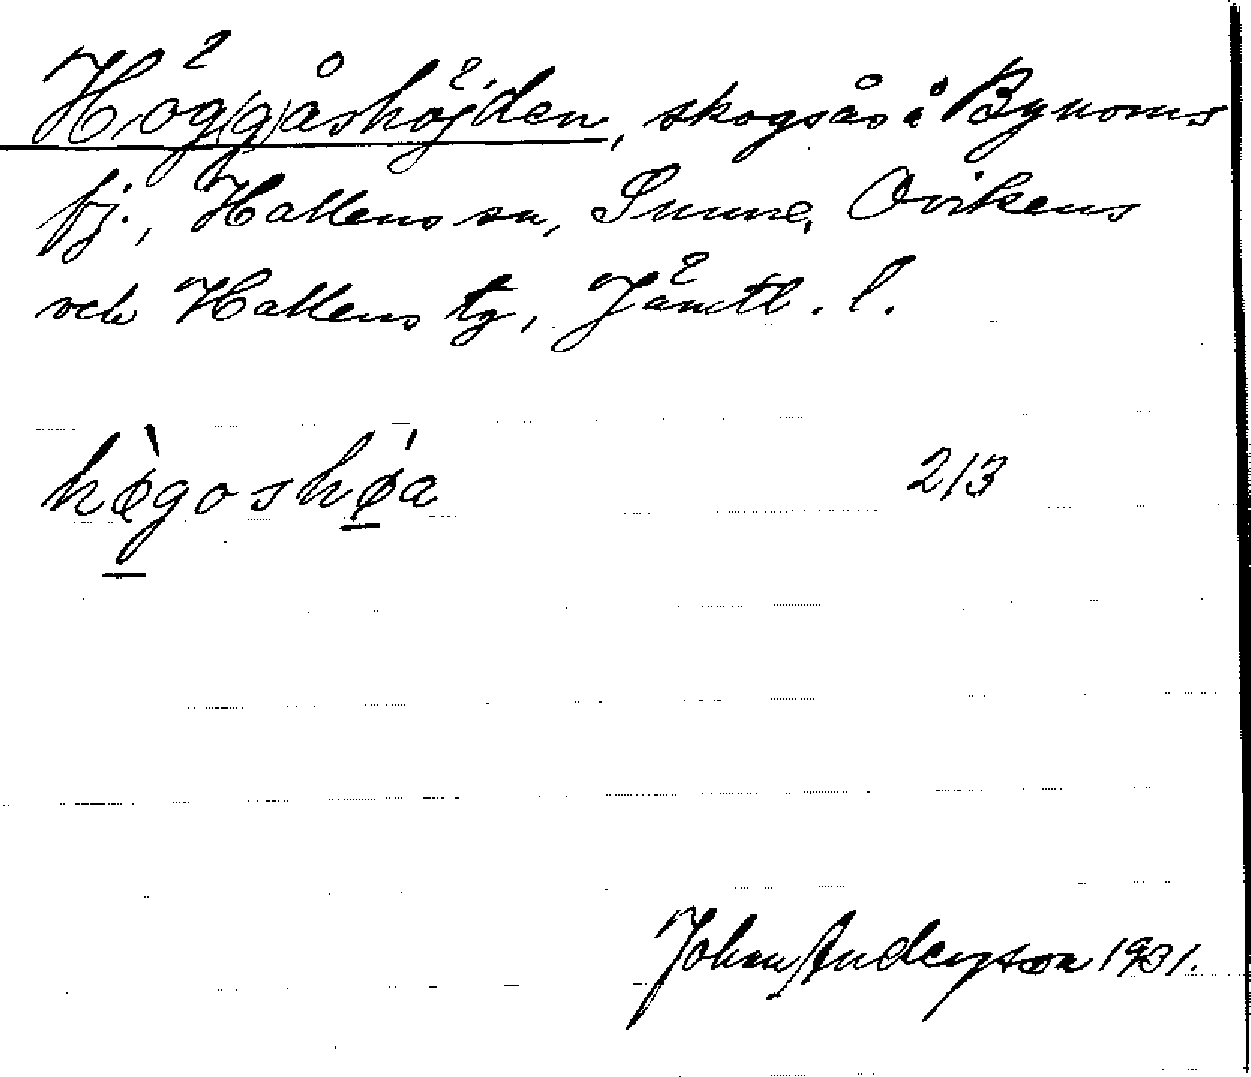 Hög(g)åshöjden, skogsås i Bynoms
fj., Hallens sn, Sunne, Ovikens
och Hallens tg, Jämtl. l.
hø̀goshǿa 2/3
Johan Anderson 1931.